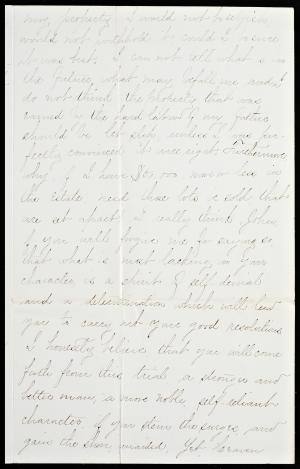 my property I would not
would not withhold it could I
it was but. I can not tell what is in
the future, what may befall me and I
do not think the property that was
earned by the hard labor of my father
should be let slip, unless I was per-
fectly convinced it was right. Furthermore
why if I have $ 00 more or less in
the estate need those lots be sold that
are set apart. I really think John
if you will forgive me for saying so,
that what is most lacking in your
character, is a spirit of self denial
and a determination which will lead
you to carry out your good resolutions
I honestly believe that you will come
forth from this trial a stronger and
better man, a more noble, self reliant
character, if you stem the surges and
gain the shore unaided. Yet heaven